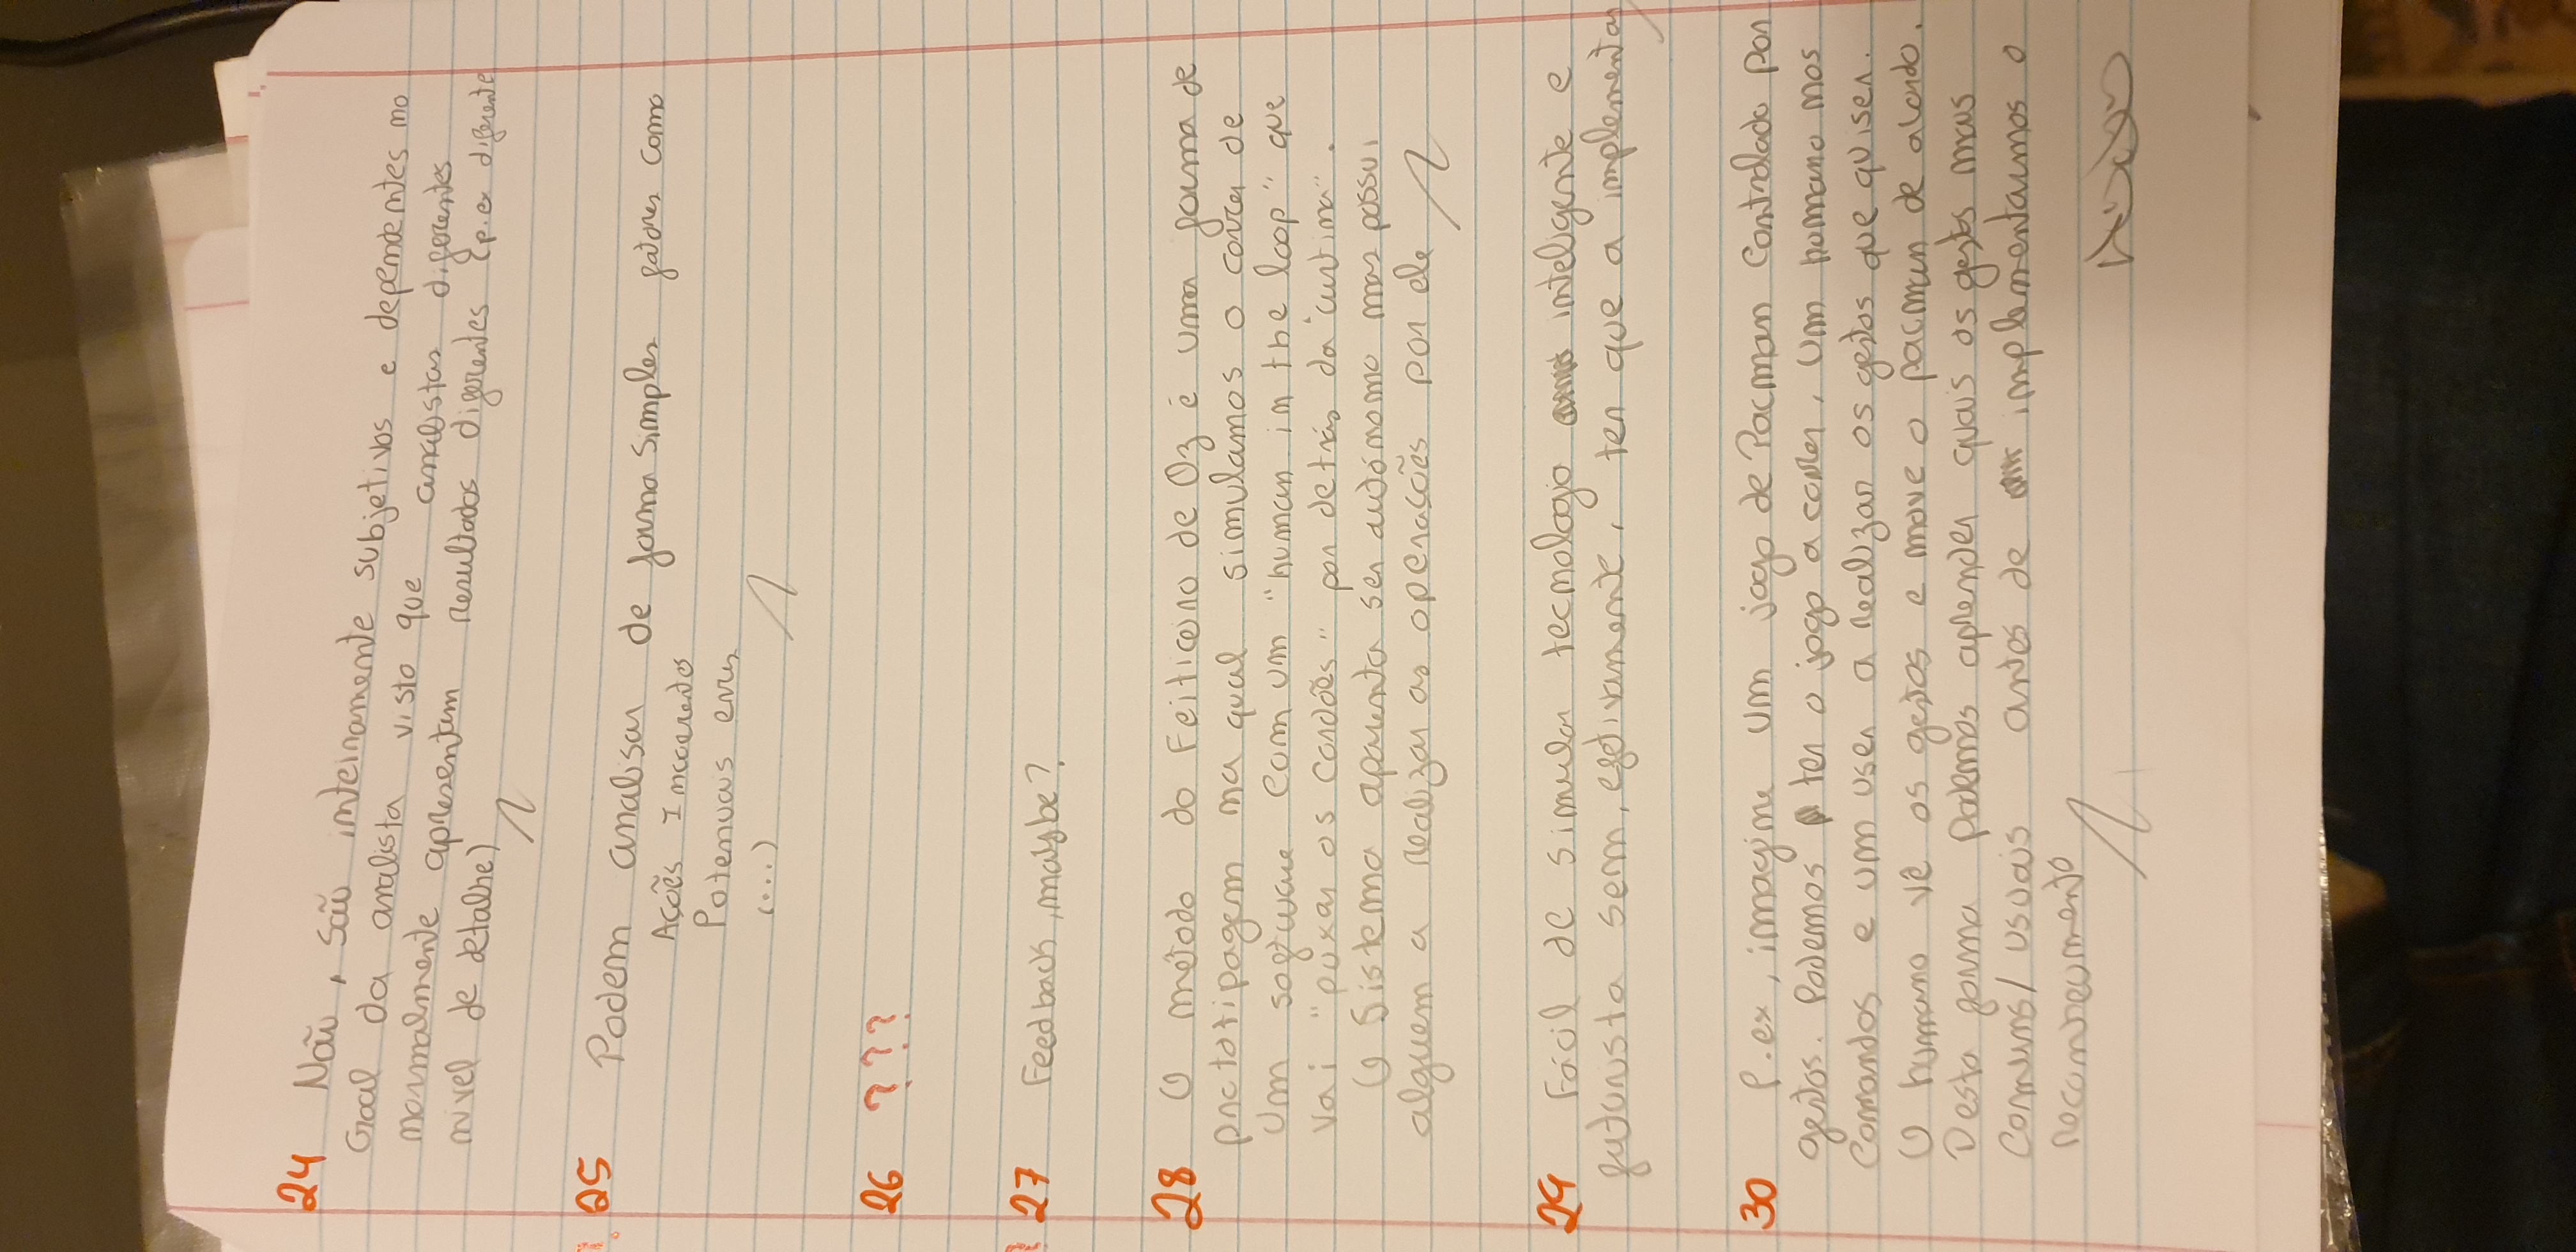 24 Não, São inteiramente subjetivos e dependentes no
Goal da analista visto que analistas diferentes
normalmente apresentam resultados diferentes (p.ex diferente
nível de detalhe)
25 Podem analisar de forma simples fatores como
Ações Incoerentes
Potenciais erros
(...)
26 ???
27 Feedback, maybe?
28 O método do Feiticeiro de Oz é uma forma de
prototipagem na qual simulamos o correr de
um software com um "human in the loop" que
vai "puxar os cordões" por detrás da "cortina".
O Sistema aparenta ser autónomo mas possui
alguem a realizar as operações por ele
29 Fácil de simular tecnologia inteligente e
futurista sem, efetivamente, ter que a implementar
30 P.ex, imagine um jogo de Pacman Controlado por
gestos. Podemos ter o jogo a correr, um humano nos
Comandos e um user a realizar os gestos que quiser.
O humano vê os gestos e move o pacman de acordo.
Desta forma podemos aprender quais os gestos mais
comuns/usuais antes de implementarmos o
reconhecimento